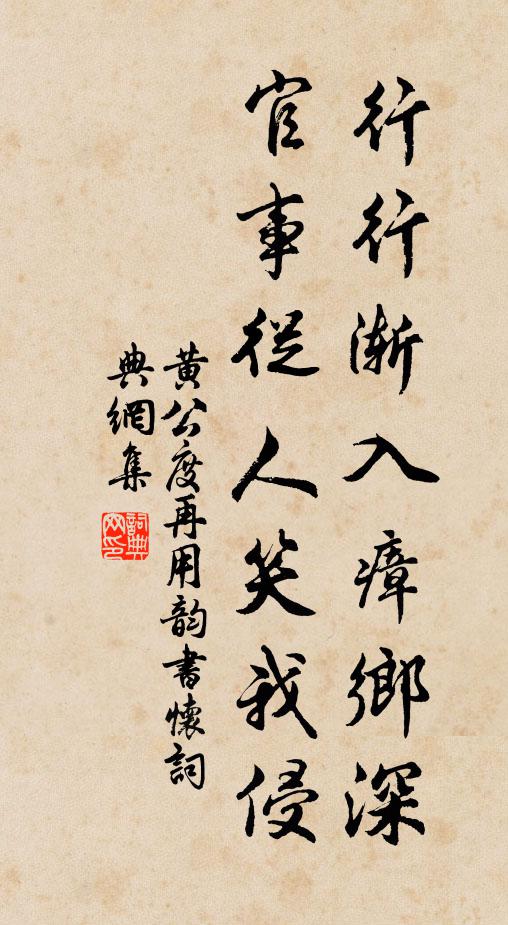 行行漸入瘴鄉深
官事從人笑我侵
黃公度再用韵書懷詞
典網集
詞典網印